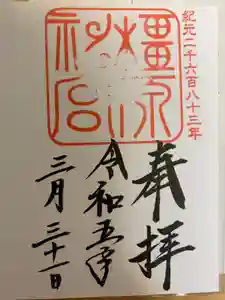 紀元二千六百八十三年
奉拝
橿原神宮
令和五年
三月三十一日